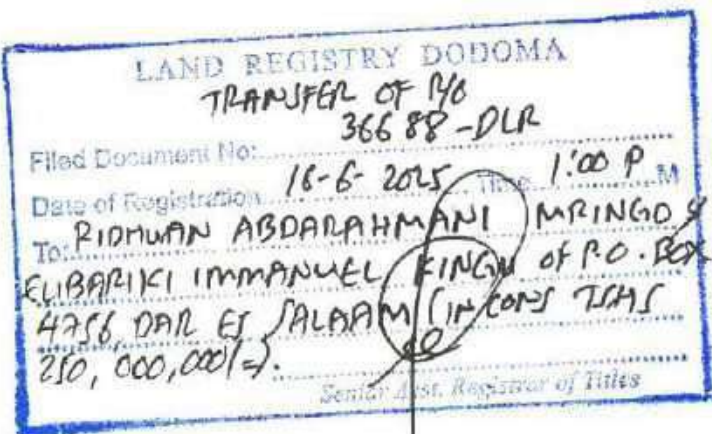 LAND REGISTRY DODOMA
TRANSFER OF R/O
Filed Document No: 36688-DLR
Date of Registration 18-6-2025 Time 1:00 P M
To: RIDHWAN ABDARAHMANI MRINGO &
ELIBARIKI IMMANUEL KINGU of P.O. BOX
4756, DAR ES SALAAM (IN CONS TSHS
250,000,000/=).
Senior Asst. Registrar of Titles